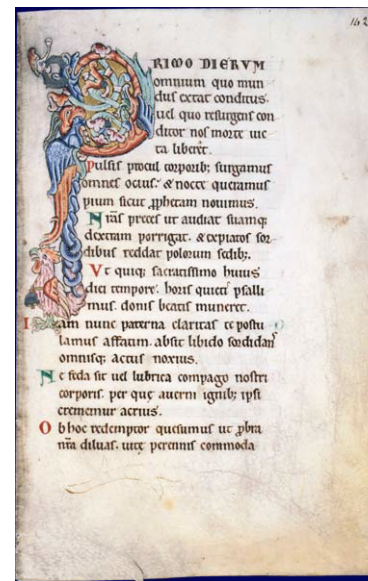 142
PRIMO DIERUM
omnium quo mun
dus extat conditus.
uel quo resurgens con
ditor nos morte uic
ta liberet.
Pulsis procul torporib; surgamus
omnes ocius. & nocte queramus
pium sicut ppheram nouimus.
Nras preces ut audiat suamq;
dexteram porrigat. & expiatos sor
dibus reddat polorum sedib;.
Vt quiq; sacratissimo huius
diei tempore. horis quieti psalli
mus. donis beatis muneret.
Iam nunc paterna claritas te postu
lamus affatim. absit libido sordidans
omnisq; actus noxius.
Ne feda sit uel lubrica compago nostri
corporis. per quę auerni ignib; ipsi
crememur acrius.
Ob hoc redemptor quesumus ut pbra
nra diluas. uitę perennis commoda